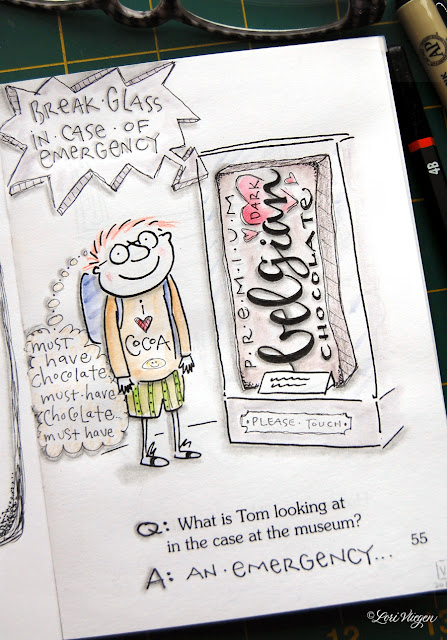 BREAK·GLASS
IN·CASE·OF
EMERGENCY
PREMIUM
DARK
belgian
CHOCOLATE
I
COCOA
must
have
chocolate
must·have
chocolate
must have
PLEASE·TOUCH
Q: What is Tom looking at
in the case at the museum?
A: AN·EMERGENCY...
55
4B
©Lori Vliegen